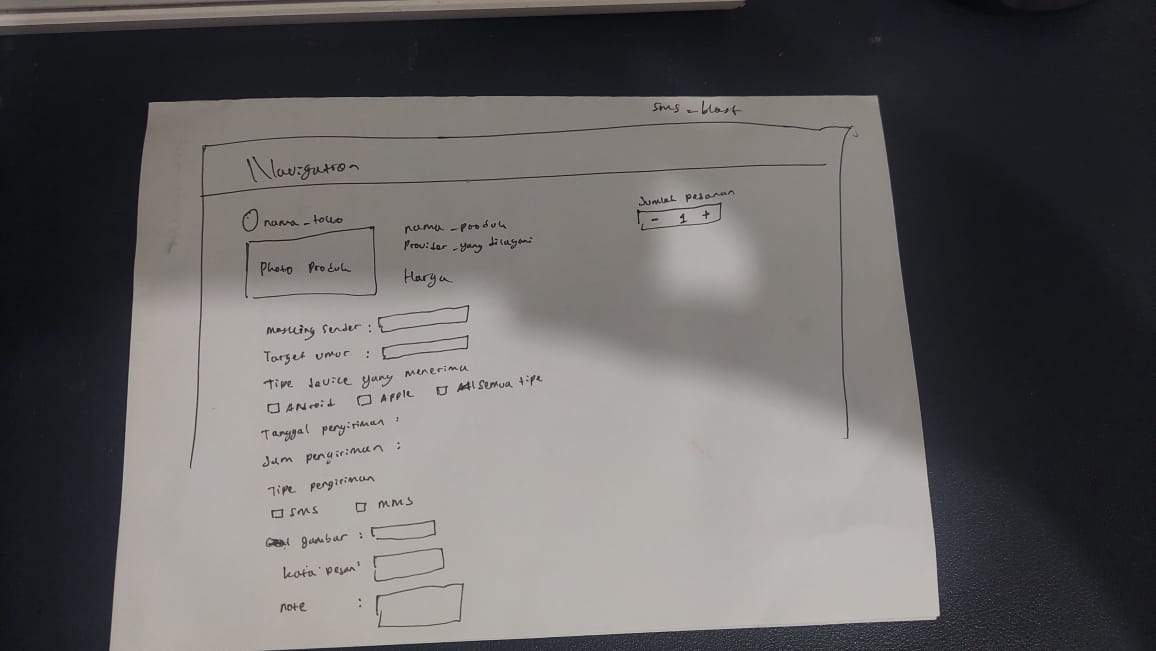 sms_blast
Navigation
nama_toko
Photo Produk
nama_produk
Provider_yang dilayani
Harga
Jumlah pesanan
- 1 +
Masking Sender :
Target umur :
Tipe device yang menerima
Android Apple semua tipe
Tanggal pengiriman :
Jam pengiriman :
Tipe pengiriman
SMS MMS
gambar :
kata pesan :
note :